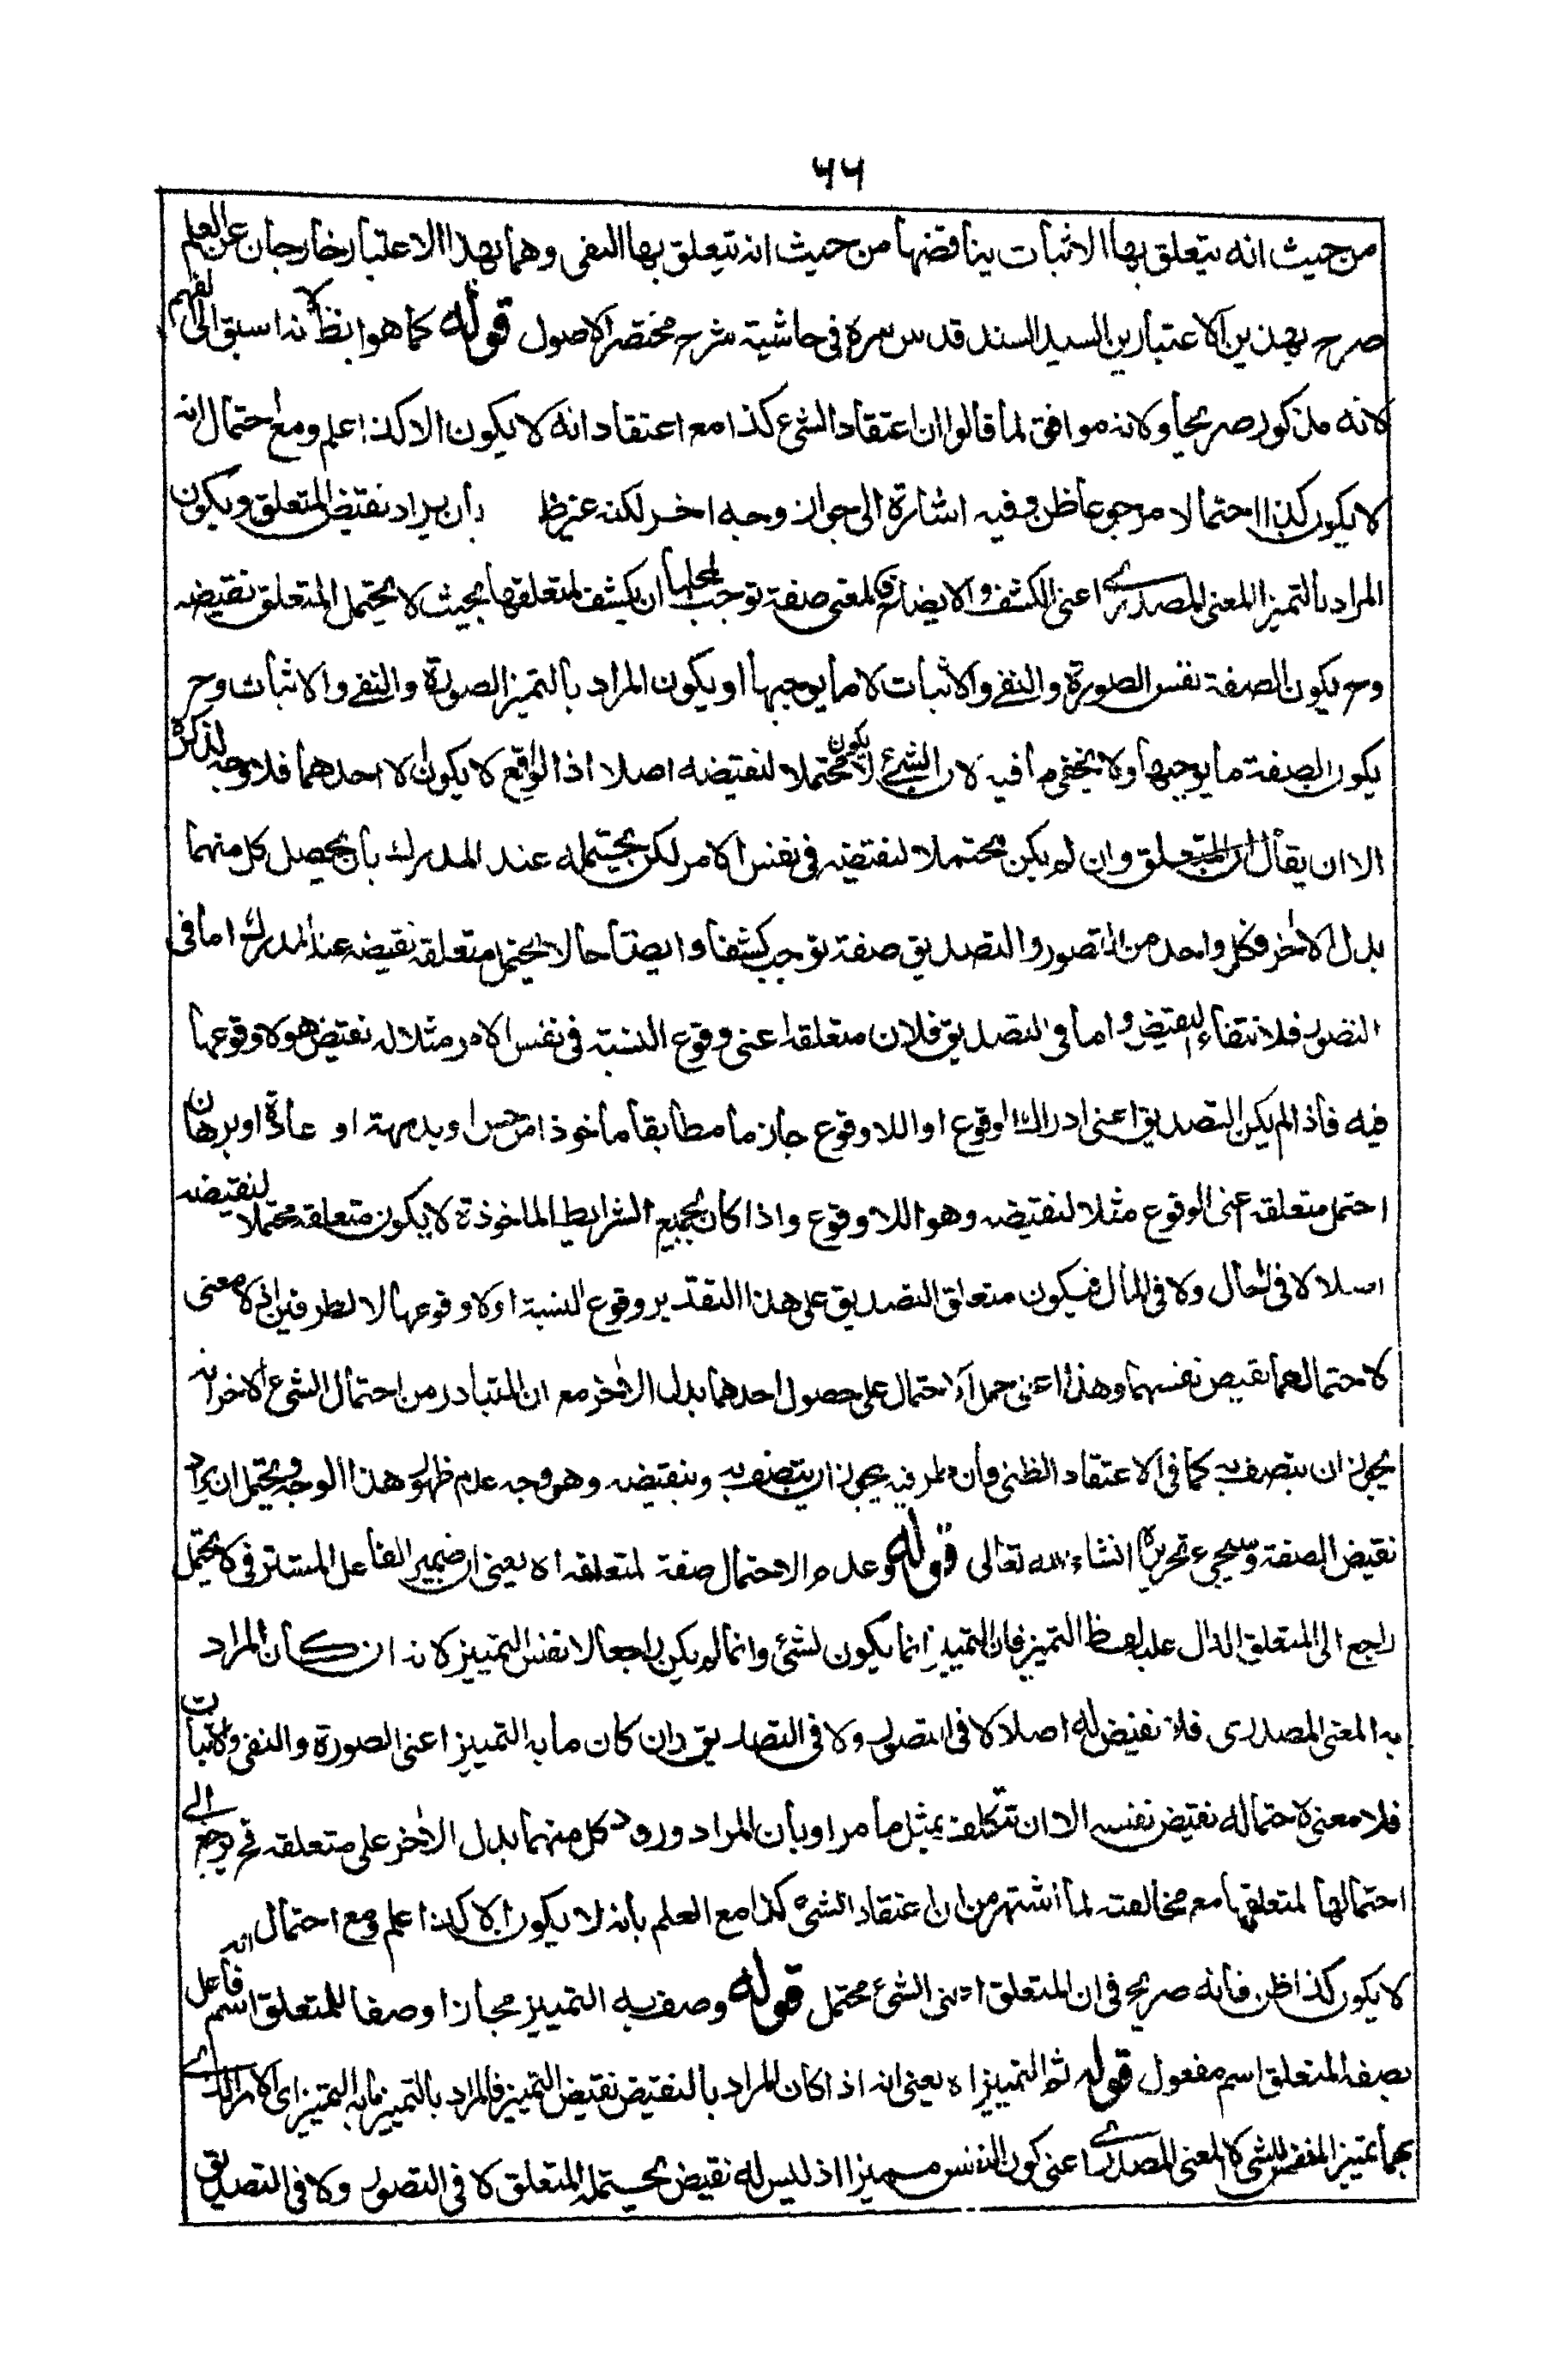 ٦٦
من حيث انه يتعلق بها الاثبات يناقضها من حيث انه يتعلق بها النفى وهما بهذا الاعتبار خارجان عن العلم
صرح بهذين الاعتبارين السيد السند قدس سره فى حاشية شرح مختصر الاصول قوله كما هو الظ لانه اسبق الى الفهم
لانه مذكور صريحا ولانه موافق لما قالوا ان اعتقاد الشئ كذا مع اعتقاد انه لا يكون الا كذا علم ومع احتمال انه
لا يكون كذا احتمالا مرجوعا ظن وفيه اشارة الى جواز وجه اخر لكنه غير ظ بان يراد نقيض المتعلق ويكون
المراد بالتميز المعنى المصدرى اعنى الكشف والايضاح فالمعنى صفة توجب لمحلها ان يكشف لمتعلقها بحيث لا يحتمل المتعلق نقيضه
وح يكون الصفة نفس الصورة والنفى والاثبات لا ما يوجبها او يكون المراد بالتميز الصورة والنفى والاثبات وح
يكون الصفة ما يوجبها ولا يخفى ما فيه لان الشئ لا يكون محتملا لنقيضه اصلا اذ الواقع لا يكون الا احدهما فلا وجه لذكره
الا ان يقال ان المتعلق وان لم يكن محتملا لنقيضه فى نفس الامر لكن يحتمله عند المدرك بان يحصل كل منهما
بدل الاخر فكل واحد من التصور والتصديق صفة توجب كشفا وايضاحا لا يحتمل متعلقه نقيضه عند المدرك اما فى
التصور فلانتفاء النقيض واما فى التصديق فلان متعلقه اعنى وقوع النسبة فى نفس الامر مثلا له نقيض هو لا وقوعها
فيه فاذا لم يكن التصديق اعنى ادراك الوقوع او اللا وقوع جازما مطابقا ماخوذا من حس او بديهة او عادة او برهان
احتمل متعلقه اعنى الوقوع مثلا لنقيضه وهو اللا وقوع واذا كان بجميع الشرايط الماخوذة لا يكون متعلقه محتملا لنقيضه
اصلا لا فى الحال ولا فى المال فيكون متعلق التصديق على هذا التقدير وقوع النسبة او لا وقوعها لا الطرفين اذ لا معنى
لاحتمالهما نقيض نفسهما وهذا اعنى حمل الاحتمال على حصول احدهما بدل الاخر مع ان المتبادر من احتمال الشئ الاخر انه
يجوز ان يتصف به كما فى الاعتقاد الظنى فان طرفيه يجوز ان يتصف به وبنقيضه وهو وجه عدم ظهور هذا الوجه ويحتمل ان يراد
نقيض الصفة وسيجئ تحريره انشاء الله تعالى قوله وعدم الاحتمال صفة لمتعلقه اه يعنى ان ضمير الفاعل المستتر فى لا يحتمل
راجع الى المتعلق الدال عليه لفظ التميز فان التميز انما يكون لشئ وانما لم يكن راجعا لا نفس التمييز لانه ان كان المراد
به المعنى المصدرى فلا نقيض له اصلا لا فى التصور ولا فى التصديق وان كان ما به التمييز اعنى الصورة والنفى والاثبات
فلا معنى لاحتماله نقيض نفسه الا ان تتكلف بمثل ما مر او بان المراد ورود كل منهما بدل الاخر على متعلقه فح يرجع الى
احتمالها لمتعلقها مع مخالفته لما اشتهر من ان اعتقاد الشئ كذا مع العلم بانه لا يكون الا كذا علم ومع احتمال انه
لا يكون كذا ظن فانه صريح فى ان المتعلق اعنى الشئ محتمل قوله وصف به التمييز مجازا وصفا للمتعلق اسم فاعل
بصفة المتعلق اسم مفعول قوله ثم التمييز اه يعنى انه اذا كان المراد بالنقيض نقيض التميز فالمراد بالتميز ما به التميز اى الامر الذى
بها تميز النفس للشئ لا المعنى المصدرى اعنى كون النفس مميزا اذ ليس له نقيض يحتمله المتعلق لا فى التصور ولا فى التصديق